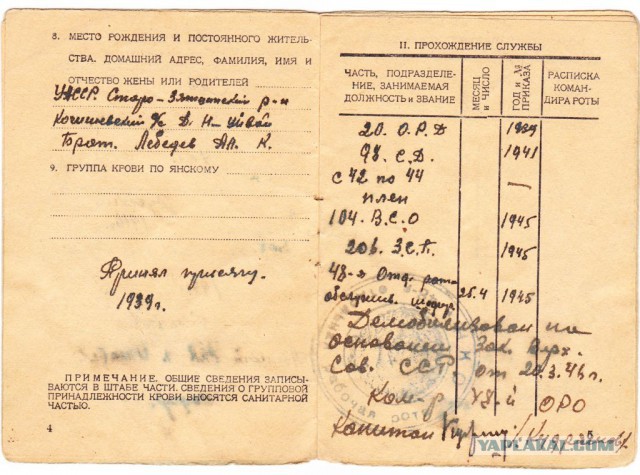 8. МЕСТО РОЖДЕНИЯ И ПОСТОЯННОГО ЖИТЕЛЬ-
СТВА. ДОМАШНИЙ АДРЕС, ФАМИЛИЯ, ИМЯ И
ОТЧЕСТВО ЖЕНЫ ИЛИ РОДИТЕЛЕЙ
УАССР. Старо-Зятцинский р-н
Д.
Брат. Лебедев Ал. К.
9. ГРУППА КРОВИ ПО ЯНСКОМУ
Принял присягу.
1939г.
ПРИМЕЧАНИЕ. ОБЩИЕ СВЕДЕНИЯ ЗАПИСЫ-
ВАЮТСЯ В ШТАБЕ ЧАСТИ. СВЕДЕНИЯ О ГРУППОВОЙ
ПРИНАДЛЕЖНОСТИ КРОВИ ВНОСЯТСЯ САНИТАРНОЙ
ЧАСТЬЮ.
4
II. ПРОХОЖДЕНИЕ СЛУЖБЫ
ЧАСТЬ, ПОДРАЗДЕЛЕ-
НИЕ, ЗАНИМАЕМАЯ
ДОЛЖНОСТЬ и ЗВАНИЕ
МЕСЯЦ
и ЧИСЛО
ГОД и №
ПРИКАЗА
РАСПИСКА
КОМАН-
ДИРА РОТЫ
20. О.Р.Д 1939
98. С.Д. 1941
с 42 по 44
плен
104. В.С.О 1945
206. З.С.П. 1945
48-я Отд. рота
обслужив. 25.4 1945
Демобилизован на
основании Зак. Верх.
Сов. СССР от 20.3.46г.
Ком-р 48-й ОРО
Капитан
YAPLAKAL.COM